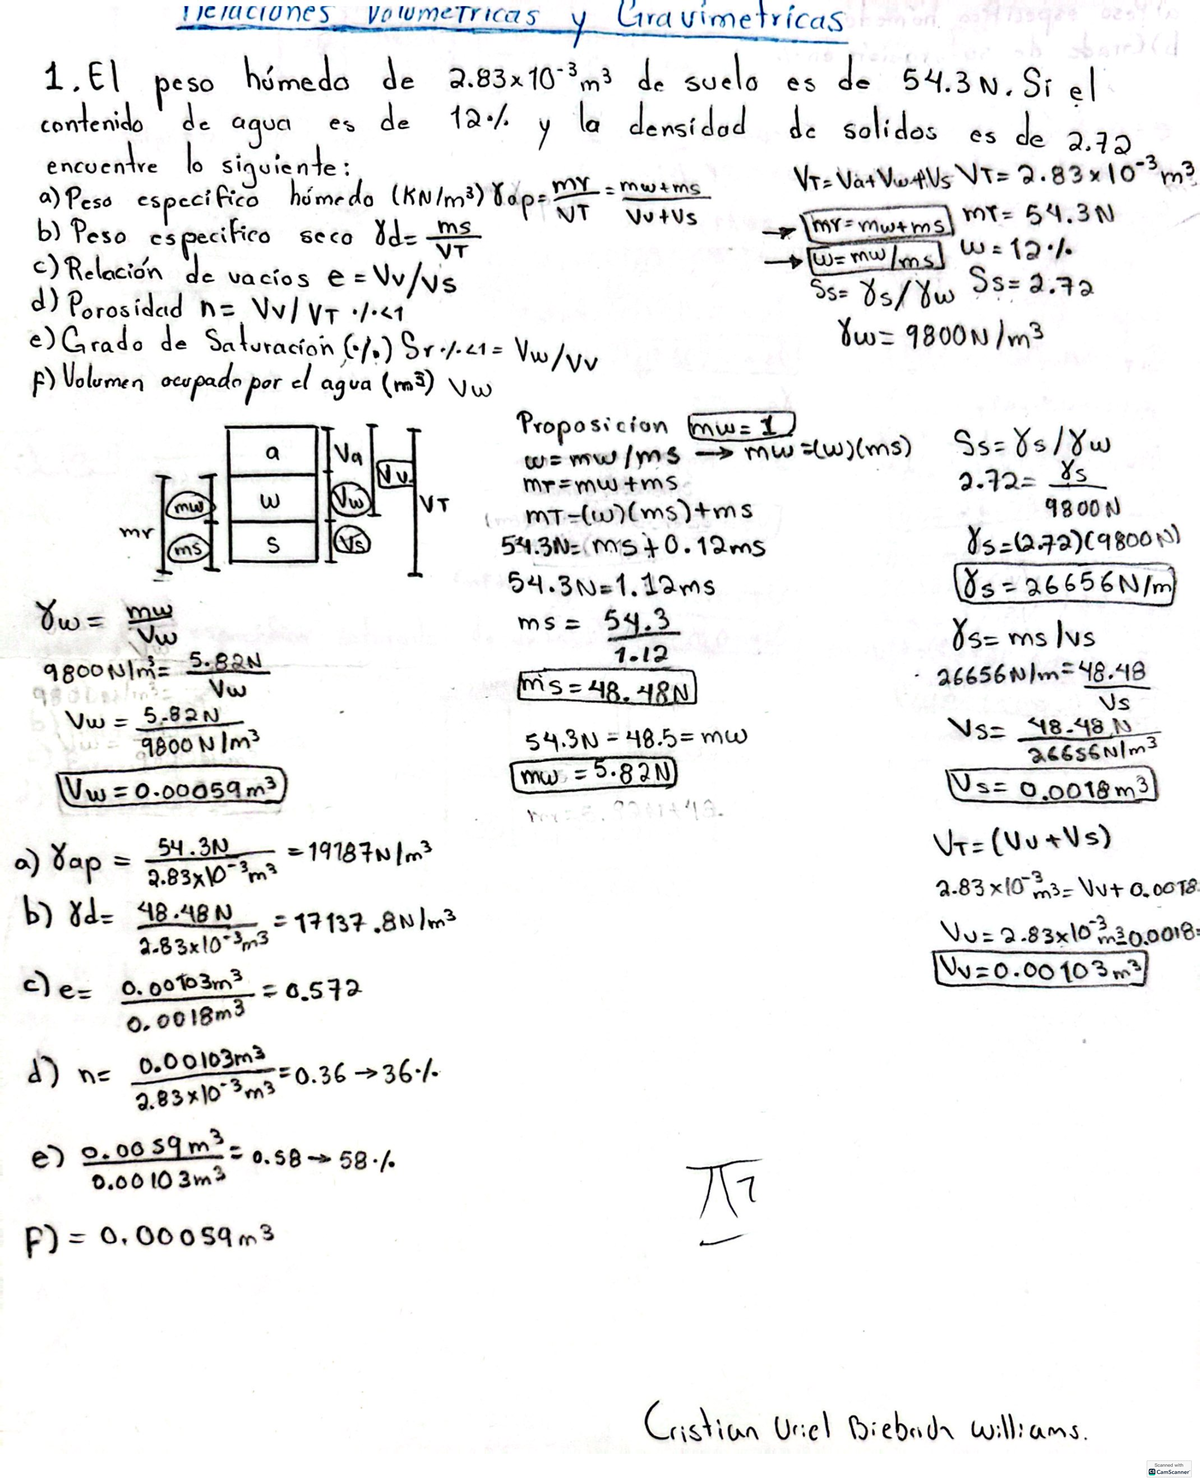 Relaciones Volumetricas y Gravimetricas
1. El peso húmedo de 2.83x10⁻³m³ de suelo es de 54.3 N. Si el
contenido de agua es de 12% y la densidad de solidos es de 2.72
encuentre lo siguiente:
a) Peso específico húmedo (KN/m³) γap = mT/VT = mw+ms/Vv+Vs
b) Peso especifico seco γd= ms/VT
c) Relación de vacíos e = Vv/Vs
d) Porosidad n= Vv/VT %<1
e) Grado de Saturación (%) Sr%<1 = Vw/Vv
f) Volumen ocupado por el agua (m³) Vw
VT= Va+Vw+Vs VT= 2.83x10⁻³m³
→ mT=mw+ms mT= 54.3N
→ w=mw/ms w=12%
Ss= γs/γw Ss=2.72
γw= 9800N/m³
a
w
s
mT
mw
ms
Va
Vw
Vs
Vv
VT
γw= mw/Vw
9800N/m³= 5.82N/Vw
Vw = 5.82N/9800N/m³
Vw=0.00059m³
Proposicion mw=1
w=mw/ms → mw=(w)(ms)
mT=mw+ms
mT=(w)(ms)+ms
54.3N=ms+0.12ms
54.3N=1.12ms
ms = 54.3/1.12
ms=48.48N
54.3N-48.5=mw
mw=5.82N
Ss=γs/γw
2.72= γs/9800N
γs=(2.72)(9800N)
γs=26656N/m
γs= ms/vs
26656N/m=48.48/Vs
Vs= 48.48N/26656N/m³
Vs= 0.0018m³
VT=(Vv+Vs)
2.83x10⁻³m³=Vv+0.0018
Vv=2.83x10⁻³m³-0.0018=
Vv=0.00103m³
a) γap = 54.3N/2.83x10⁻³m³ =19187N/m³
b) γd= 48.48N/2.83x10⁻³m³ =17137.8N/m³
c) e= 0.00103m³/0.0018m³ =0.572
d) n= 0.00103m³/2.83x10⁻³m³ =0.36→36%
e) 0.0059m³/0.00103m³ = 0.58→58%
F) = 0.00059m³
Cristian Uriel Biebrich Williams.
Scanned with
CamScanner